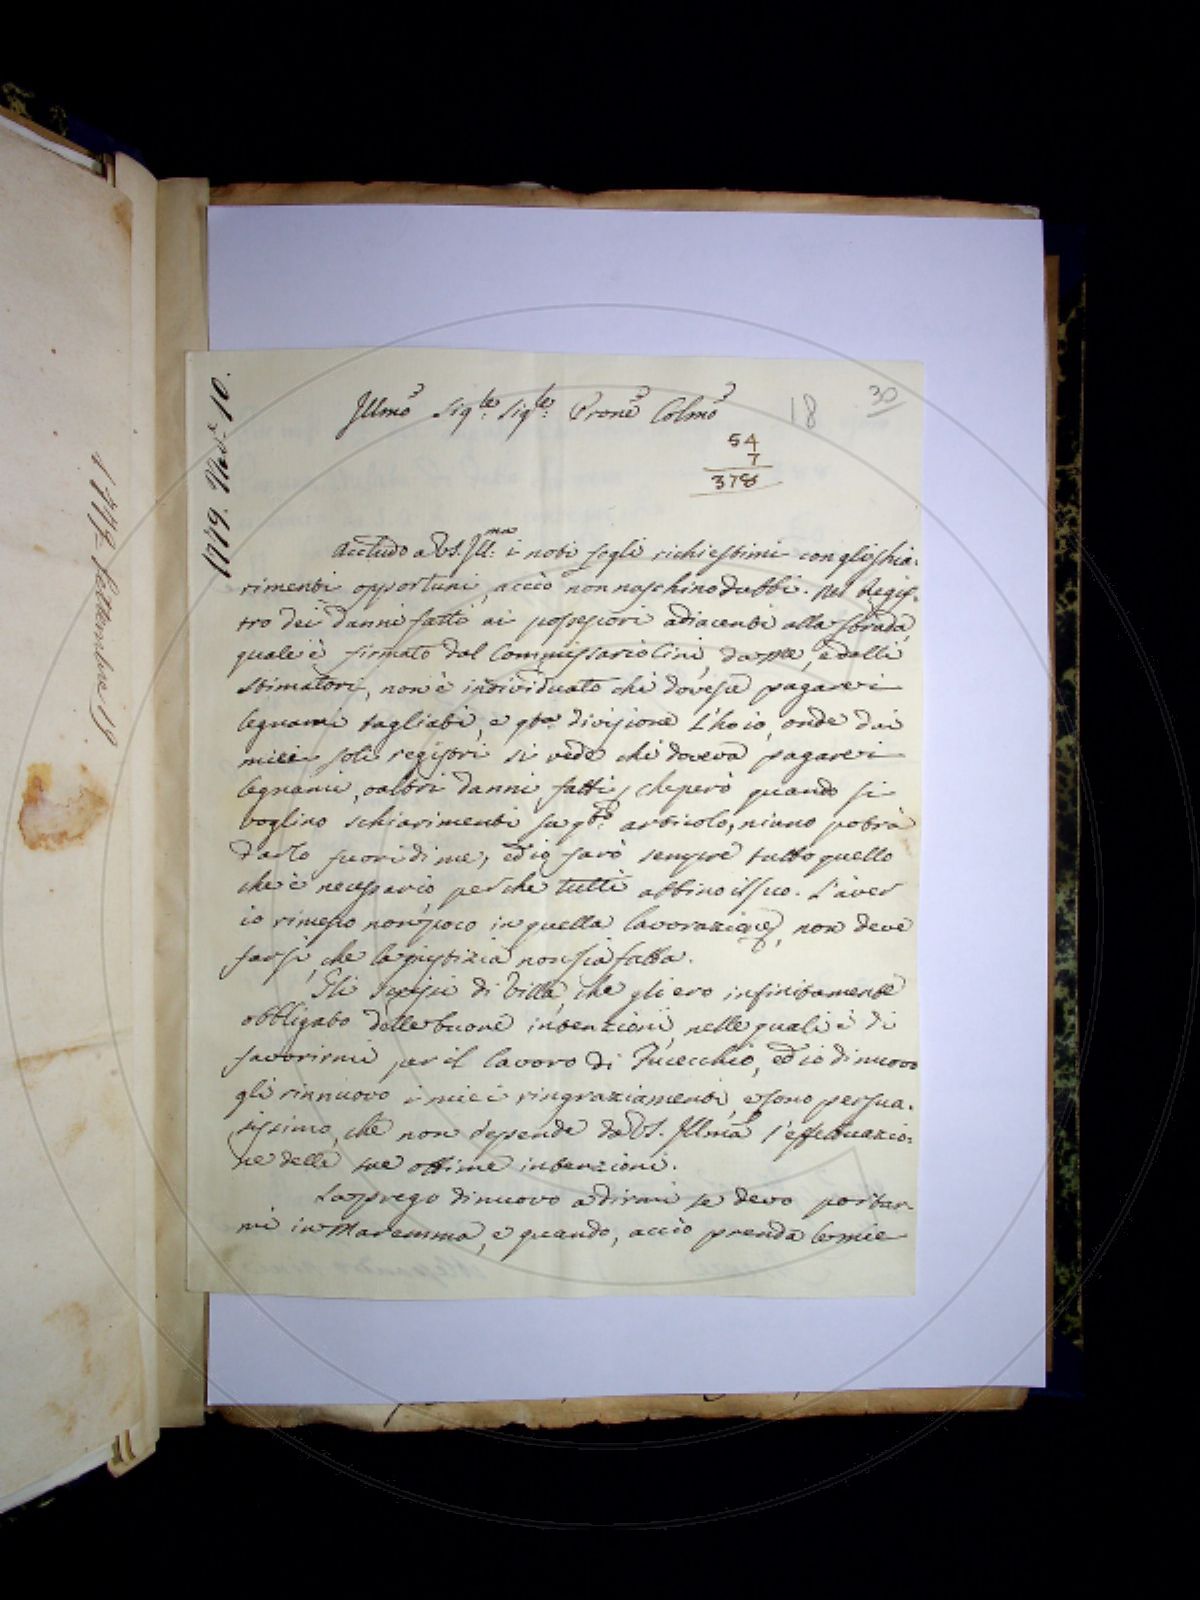 1777. Settembre 19
1779. Nov.e 10.
Illmo Sig.re Sig.re Prone Colmo
18
30
54
7
378
Accludo a VS. Ill.ma i noti fogli richiestimi con gli schia-
rimenti opportuni, acciò non naschino dubbi. Nel Regis-
tro dei danni fatto ai possessori adiacenti alla strada,
quale è firmato dal Commissario Cini, da me, e dalli
stimatori, non è individuato chi dovesse pagare i
legnami tagliati, e q.ta divisione l'ho io, onde dai
miei soli registri si vede chi doveva pagare i
legnami, o altri danni fatti; che però quando si
voglino schiarimenti su q.to articolo, niuno potrà
darlo fuori di me, ed io farò sempre tutto quello
che è necessario, perche tutti abbino il suo. L'aver
io rimesso non poco in quella lavorazione, non deve
farsi, che la giustizia non sia fatta.
Gli scrissi di Villa, che gli ero infinitamente
obbligato delle buone intenzioni, nelle quali è di
favorirmi per il lavoro di Fucecchio, ed io di nuovo
gli rinnuovo i miei ringraziamenti, e sono persua-
sissimo, che non depende da VS. Illma l'effettuazio-
ne delle sue ottime intenzioni.
La prego di nuovo a dirmi se devo portar-
mi in Maremma, e quando, acciò prenda le mie